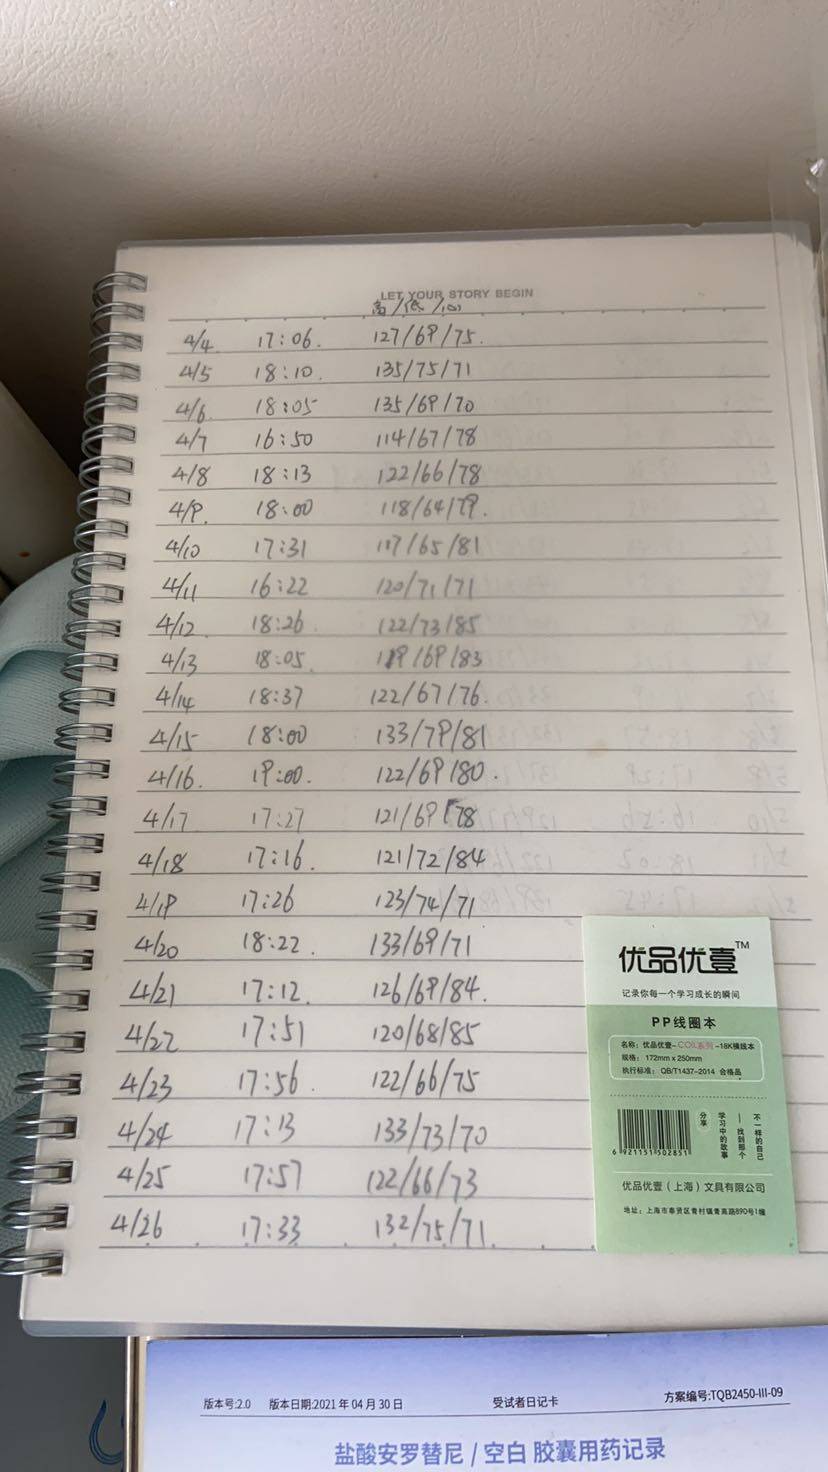 LET YOUR STORY BEGIN
高/低/心
4/4 17:06. 127/69/75.
4/5 18:10. 135/75/71
4/6. 18:05 135/69/70
4/7 16:50 114/67/78
4/8 18:13 122/66/78
4/9. 18:00 118/64/79.
4/10 17:31 117/65/81
4/11 16:22 120/71/71
4/12 18:26. 122/73/85
4/13 18:05. 119/69/83
4/14 18:37 122/67/76.
4/15 18:00 133/79/81
4/16. 19:00. 122/69/80.
4/17 17:27 121/69/78
4/18 17:16. 121/72/84
4/19 17:26 123/74/71
4/20 18:22. 133/69/71
4/21 17:12. 126/69/84.
4/22 17:51 120/68/85
4/23 17:56. 122/66/75
4/24 17:13 133/73/70
4/25 17:57 122/66/73
4/26 17:33 132/75/71
优品优壹™
记录你每一个学习成长的瞬间
PP线圈本
名称：优品优壹-COIL系列-18K横线本
规格：172mm x 250mm
执行标准：QB/T1437-2014 合格品
不一样的自己
—找到那个
学习中的故事
分享
6 921151 502851
优品优壹（上海）文具有限公司
地址：上海市奉贤区青村镇青高路890号1幢
版本号:2.0 版本日期:2021年04月30日 受试者日记卡 方案编号:TQB2450-III-09
盐酸安罗替尼/空白 胶囊用药记录